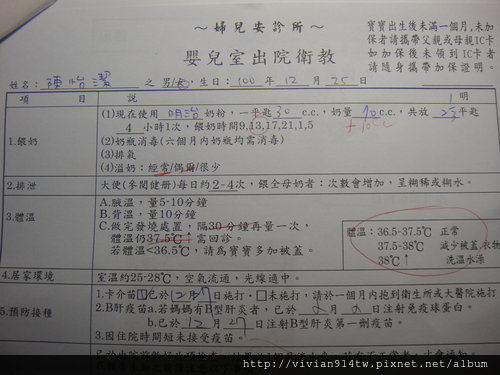 ～婦兒安診所～
嬰兒室出院衛教
寶寶出生後未滿一個月,未加
保者請攜帶父親或母親IC卡
如加保後未領到IC卡者
請隨身攜帶加保證明。
姓名:陳怡潔 之 男/女,生日:100年12月25日
項 目 說 明
1.餵奶
(1)現在使用 明治 奶粉,一平匙30 c.c.,奶量 70 c.c.,共放 平匙
+10c.c
4 小時1次,餵奶時間9,13,17,21,1,5
(2)奶瓶消毒(六個月內奶瓶均需消毒)
(3)排氣
(4)溢奶:經常/偶爾/很少
2.排泄 大便(參閱健冊)每日約2-4次,餵全母奶者:次數會增加,呈糊稀或糊水。
3.體溫
A.腋溫,量5-10分鐘
B.背溫,量10分鐘
C.做完發燒處置,隔30分鐘再量一次,
體溫仍37.5℃↑需回診。
若體溫<36.5℃,請為寶寶多加被蓋。
體溫:36.5-37.5℃ 正常
37.5-38℃ 減少被蓋.衣物
38℃↑ 洗溫水澡
4.居家環境 室溫約25-28℃,空氣流通,光線適中。
5.預防接種
1.卡介苗□已於12月27日施打,□未施打,請於一個月內抱到衛生所或大醫院施打
2.B肝疫苗a.若媽媽有B型肝炎者,已於 月 日注射免疫球蛋白。
b.已於12月27日注射B型肝炎第一劑疫苗。
3.因住院時間短未接受疫苗。
http://vivian914tw.pixnet.net/album